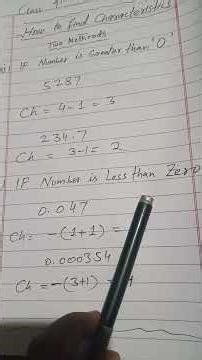 Class 9
How to find Characteristics
Two Methods
If Number is Greater than "0"
5287
Ch = 4-1 = 3
234.7
Ch = 3-1 = 2
IF Number is Less than Zero
0.047
Ch = -(1+1) =
0.000354
Ch = -(3+1) = 4